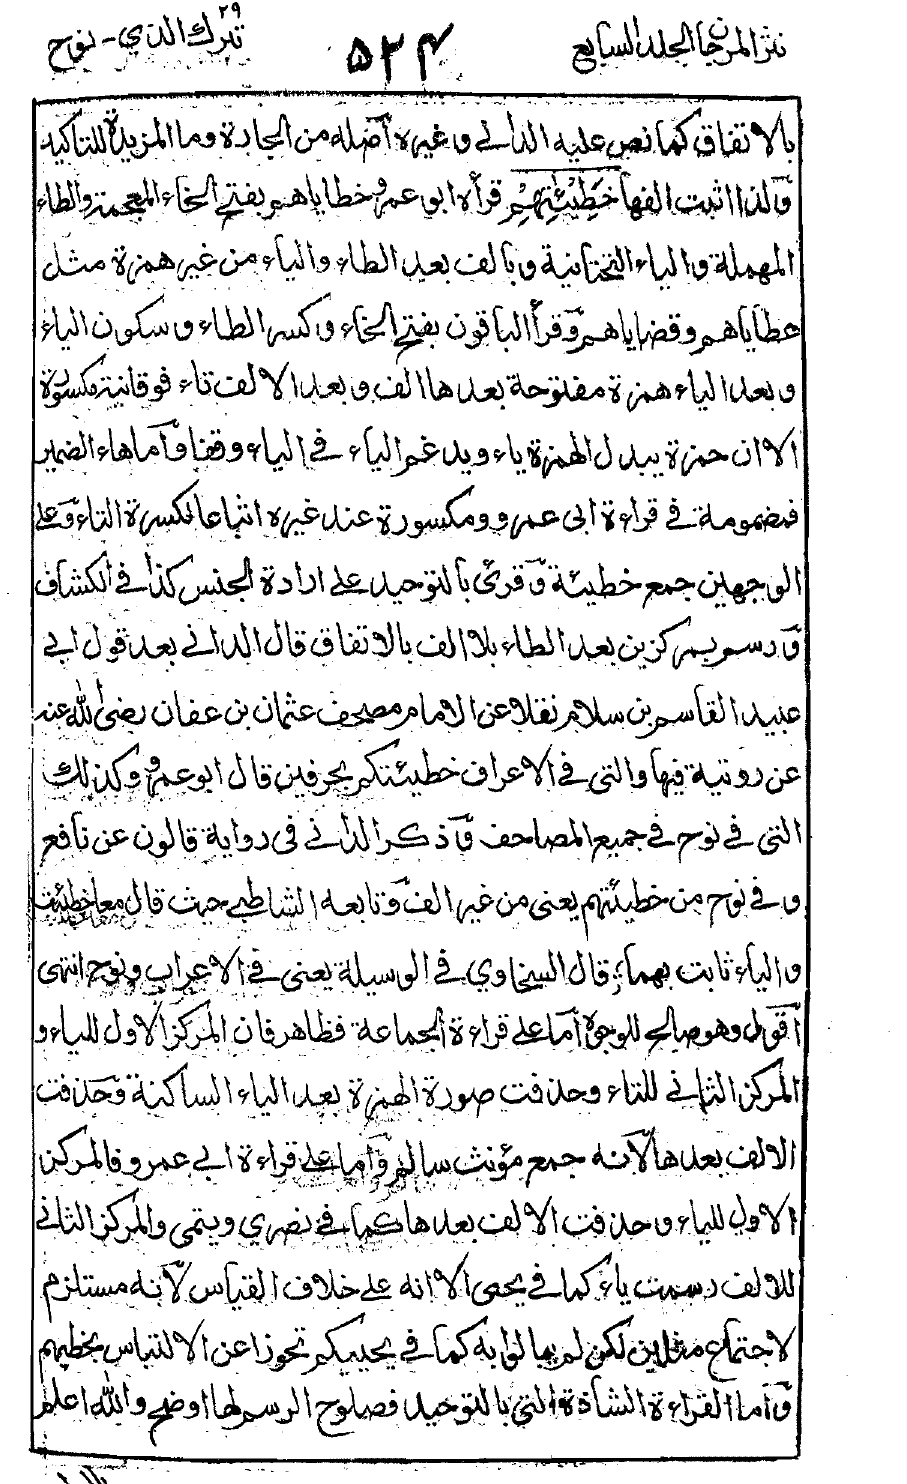 نثر المرجان الجلد السابع
۵۳۴
تبرك الذي ۲۹ - نوح
بالاتفاق كما نص عليه الداني وغيره أصله من الجارة وما المزيدة للتاكيد
ولذا اثبت الفها خَطِيْئٰتِهِمْ قرأه ابو عمرو خطاياهم بفتح الخاء المعجمة والطاء
المهملة والياء التحتانية وبالف بعد الطاء والياء من غير همزة مثل
عطاياهم وقضاياهم وقرأ الباقون بفتح الخاء وكسر الطاء وسكون الياء
وبعد الياء همزة مفتوحة بعدها الف وبعد الالف تاء فوقانية مكسورة
الا ان حمزة يبدل الهمزة ياء ويدغم الياء في الياء وقفا واما هاء الضمير
فمضمومة في قراءة ابى عمرو ومكسورة عند غيره اتباعا لكسرة التاء وعلى
الوجهين جمع خطيئة وقرئ بالتوحيد على ارادة الجنس كذا في الكشاف
ورسم بمركزين بعد الطاء بلا الف بالاتفاق قال الداني بعد قول ابي
عبيد القاسم بن سلام نقلا عن الامام مصحف عثمان بن عفان رضى الله عنه
عن روتية فيها والتى في الاعراف خطيئتكم بحرفين قال ابو عمرو وكذلك
التى في نوح في جميع المصاحف وذكر الداني فى رواية قالون عن نافع
وفي نوح من خطيئتهم يعنى من غير الف وتابعه الشاطبي حيث قال معا خطيئت
والياء ثابت بهما؛ قال السخاوي في الوسيلة يعنى في الاعراب ونوح انتهى
اقول وهو صالح للوجوه اما على قراءة الجماعة فظاهر فان المركز الاول للياء و
المركز الثاني للتاء وحذفت صورة الهمزة بعد الياء الساكنة وحذفت
الالف بعدها لانه جمع مؤنث سالم واما على قراءة ابي عمرو فالمركز
الاول للياء وحذفت الالف بعدها كما في نصرى ويتمى والمركز الثاني
للالف رسمت ياء كما في يحيى الا انه على خلاف القياس لانه مستلزم
لاجتماع مثلين لكن لم يبالوا به كما في يحييكم تحوزا عن الالتباس بخطيهم
واما القراءة الشاذة التي بالتوحيد فصلوح الرسم لها اوضح والله اعلم